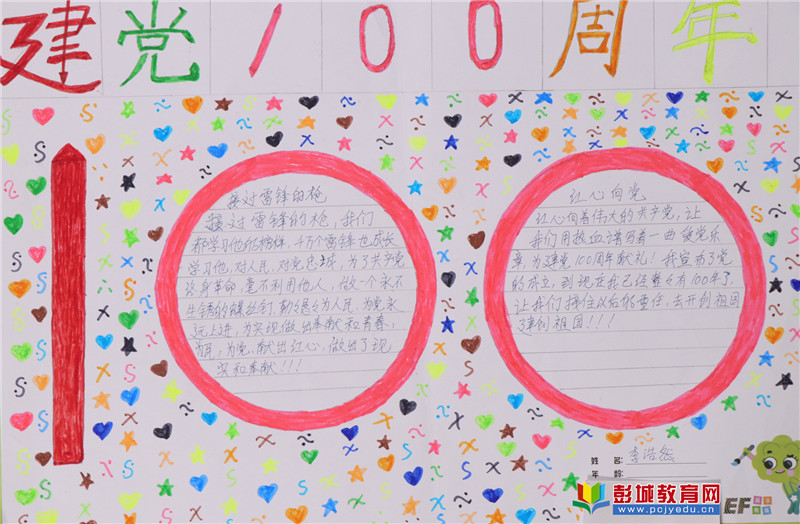 建党100周年
接过雷锋的枪
接过雷锋的枪，我们
都学习他好榜样，千万个雷锋也成长
学习他，对人民，对党忠诚，为了共产党
终身革命，毫不利用他人，做一个永不
生锈的螺丝钉，勤勤恳恳为人民，为党永
远上进，为实现做出奉献和青春，
为党，献出红心，做出了现
实和奉献！！！
让心向党
让心向着伟大的共产党，让
我们用热血谱写着一曲爱党乐
章，为建党100周年献礼！我宣布了党
的成立，到现在我已经整整有100年了，
让我们择住以后的重任，去开创祖国
建创祖国！！！
姓 名: 李浩然
年 龄:
彭城教育网
www.pcjyedu.cn
EF